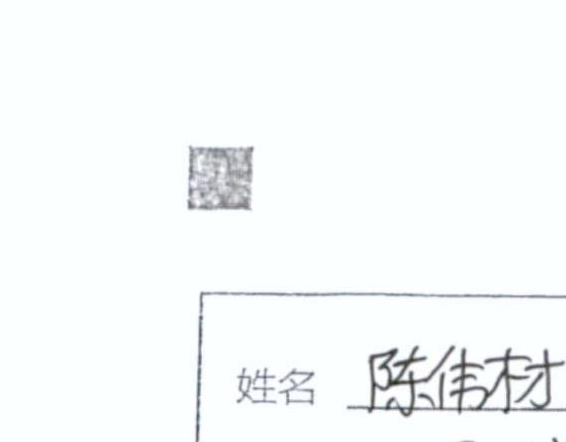 姓名 陈伟材